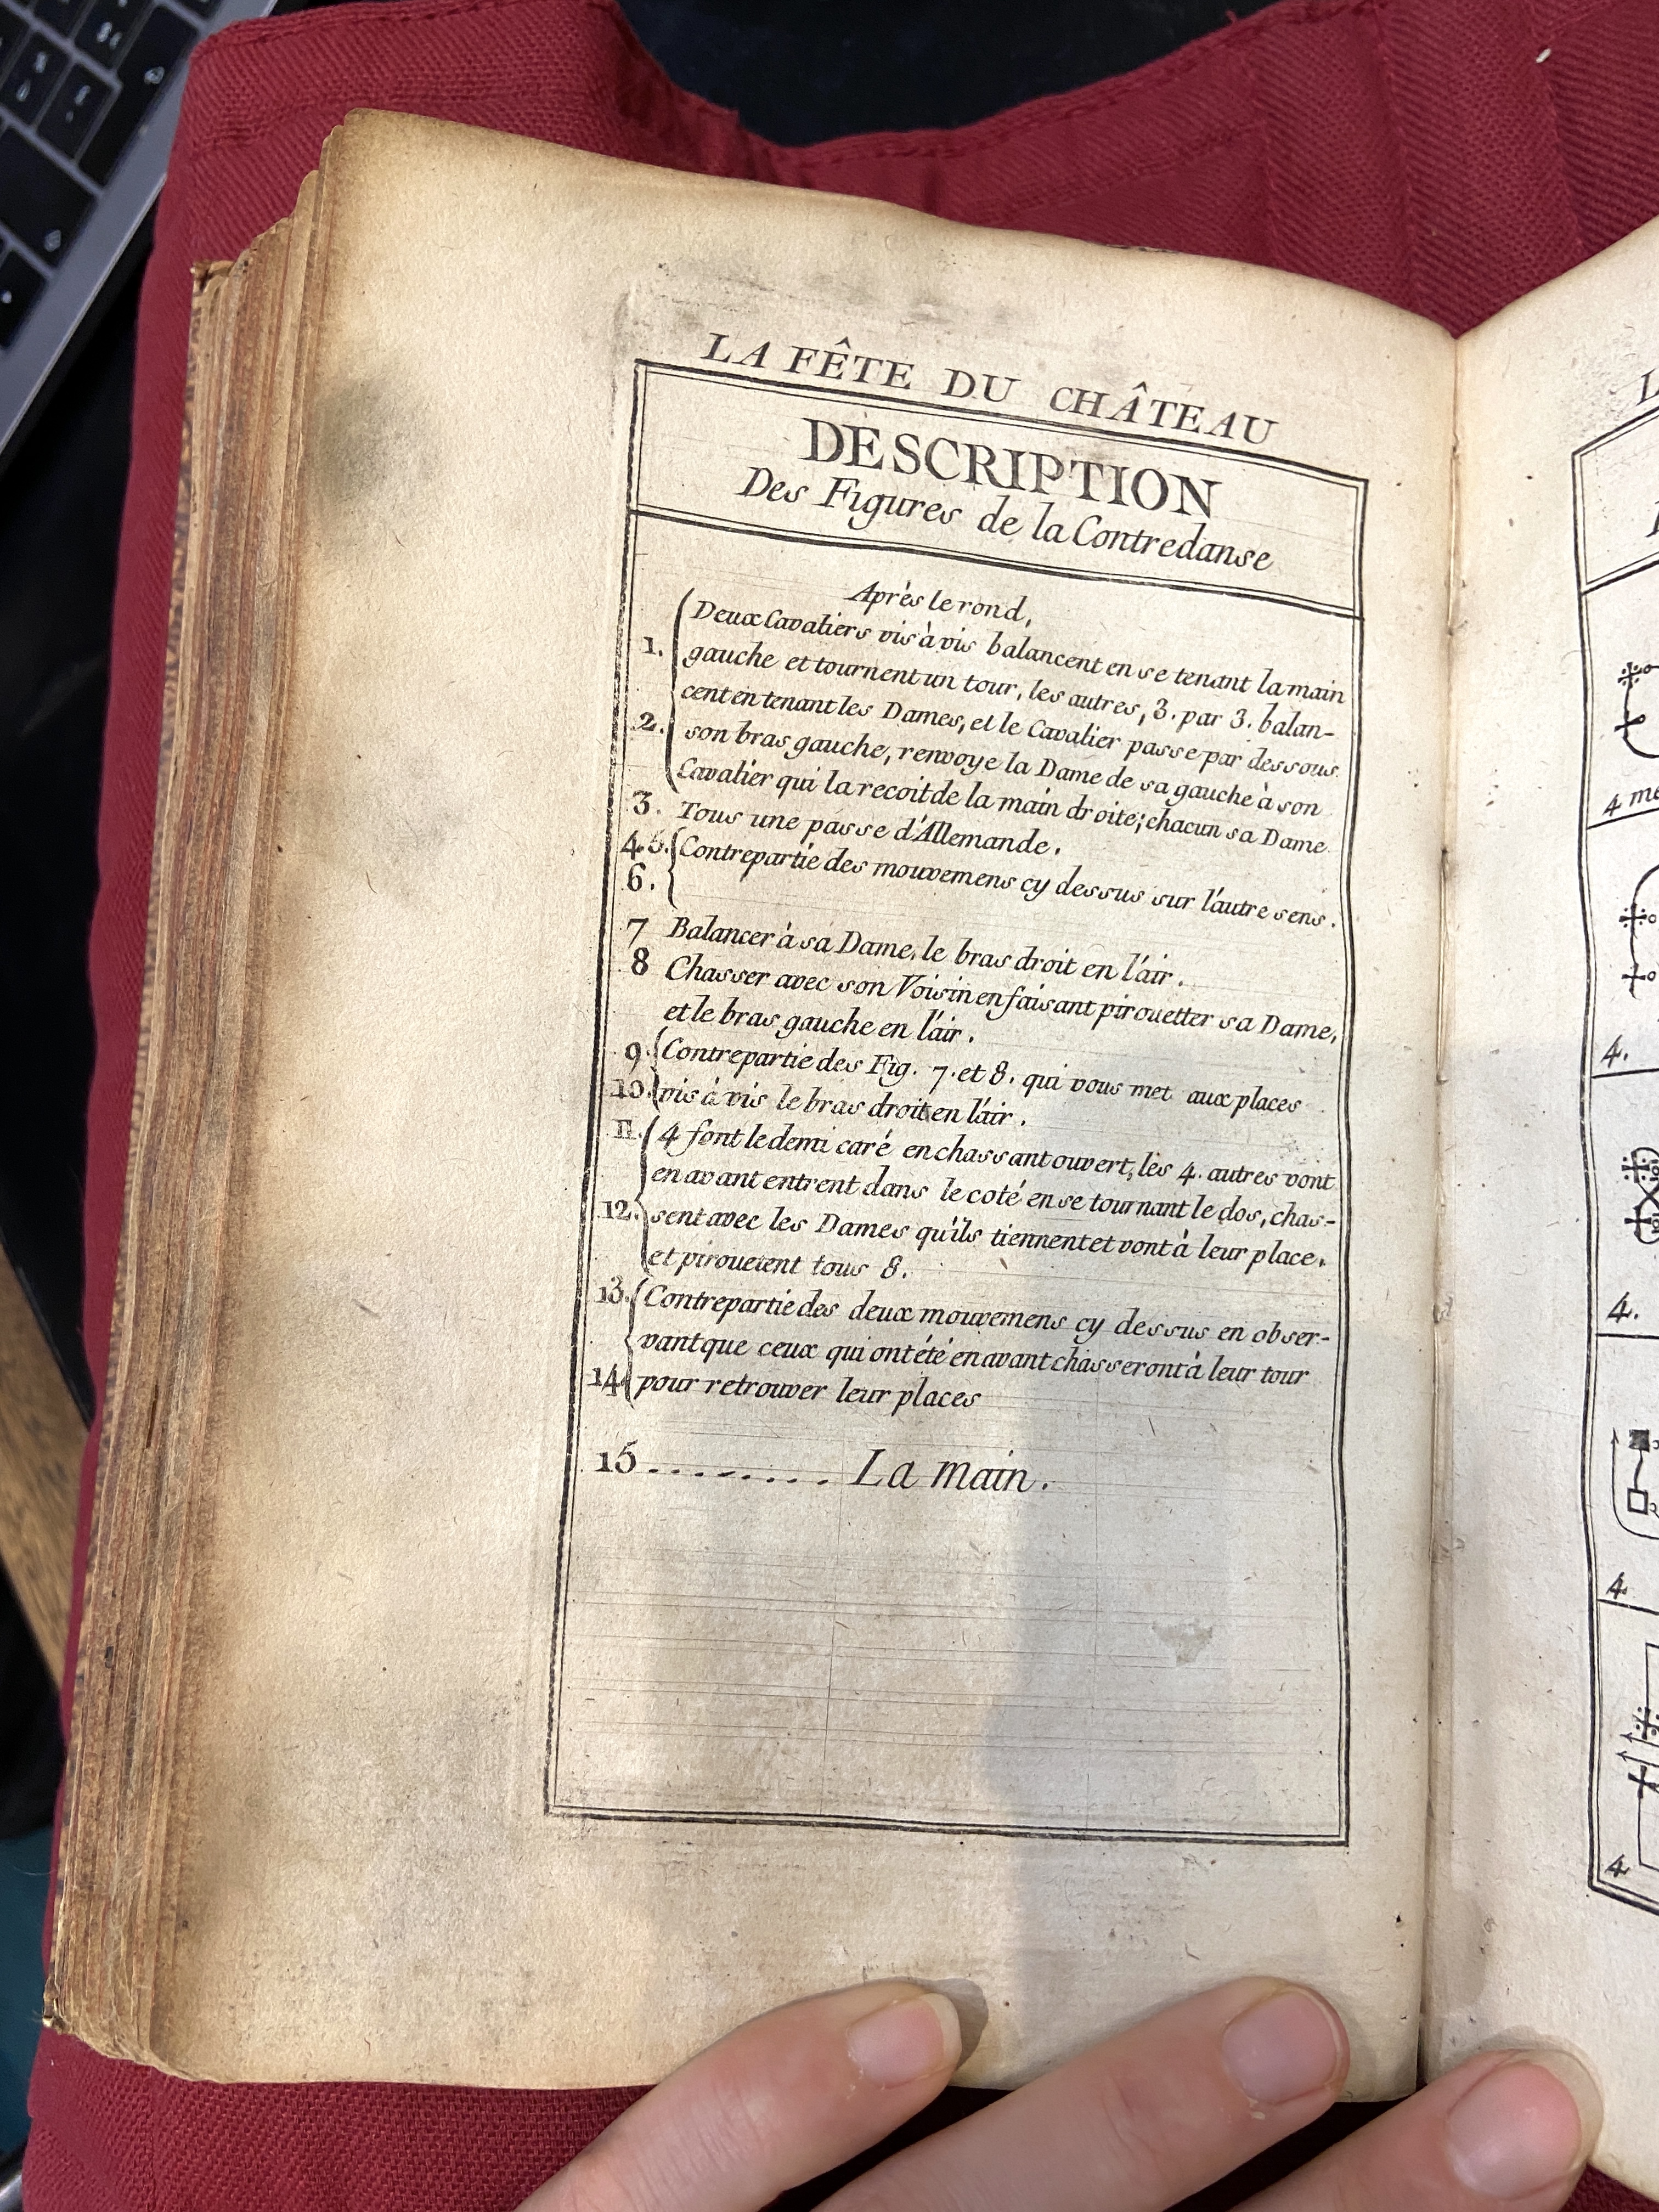 LA FÊTE DU CHÂTEAU
DESCRIPTION
Des Figures de la Contredanse
Après le rond,
1. Deux Cavaliers vis à vis balancent en se tenant la main
gauche et tournent un tour, les autres, 3. par 3. balan-
cent en tenant les Dames, et le Cavalier passe par dessous
2. son bras gauche, renvoye la Dame de sa gauche à son
Cavalier qui la recoit de la main droite; chacun sa Dame
3. Tous une passe d'Allemande.
4.5. Contrepartie des mouvemens cy dessus sur l'autre sens.
6.
7 Balancer à sa Dame, le bras droit en l'air.
8 Chasser avec son Voisin en faisant pirouetter sa Dame,
et le bras gauche en l'air.
9. Contrepartie des Fig. 7. et 8. qui vous met aux places
10. vis à vis le bras droit en l'air.
11. 4 font le demi caré en chassant ouvert, les 4. autres vont
en avant entrent dans le coté en se tournant le dos, chas-
12. sent avec les Dames qu'ils tiennent et vont à leur place.
et pirouetent tous 8.
13. Contrepartie des deux mouvemens cy dessus en obser-
vant que ceux qui ont été en avant chasseront à leur tour
14. pour retrouver leur places
15 ......... La main.
4
4.
4.
4
4